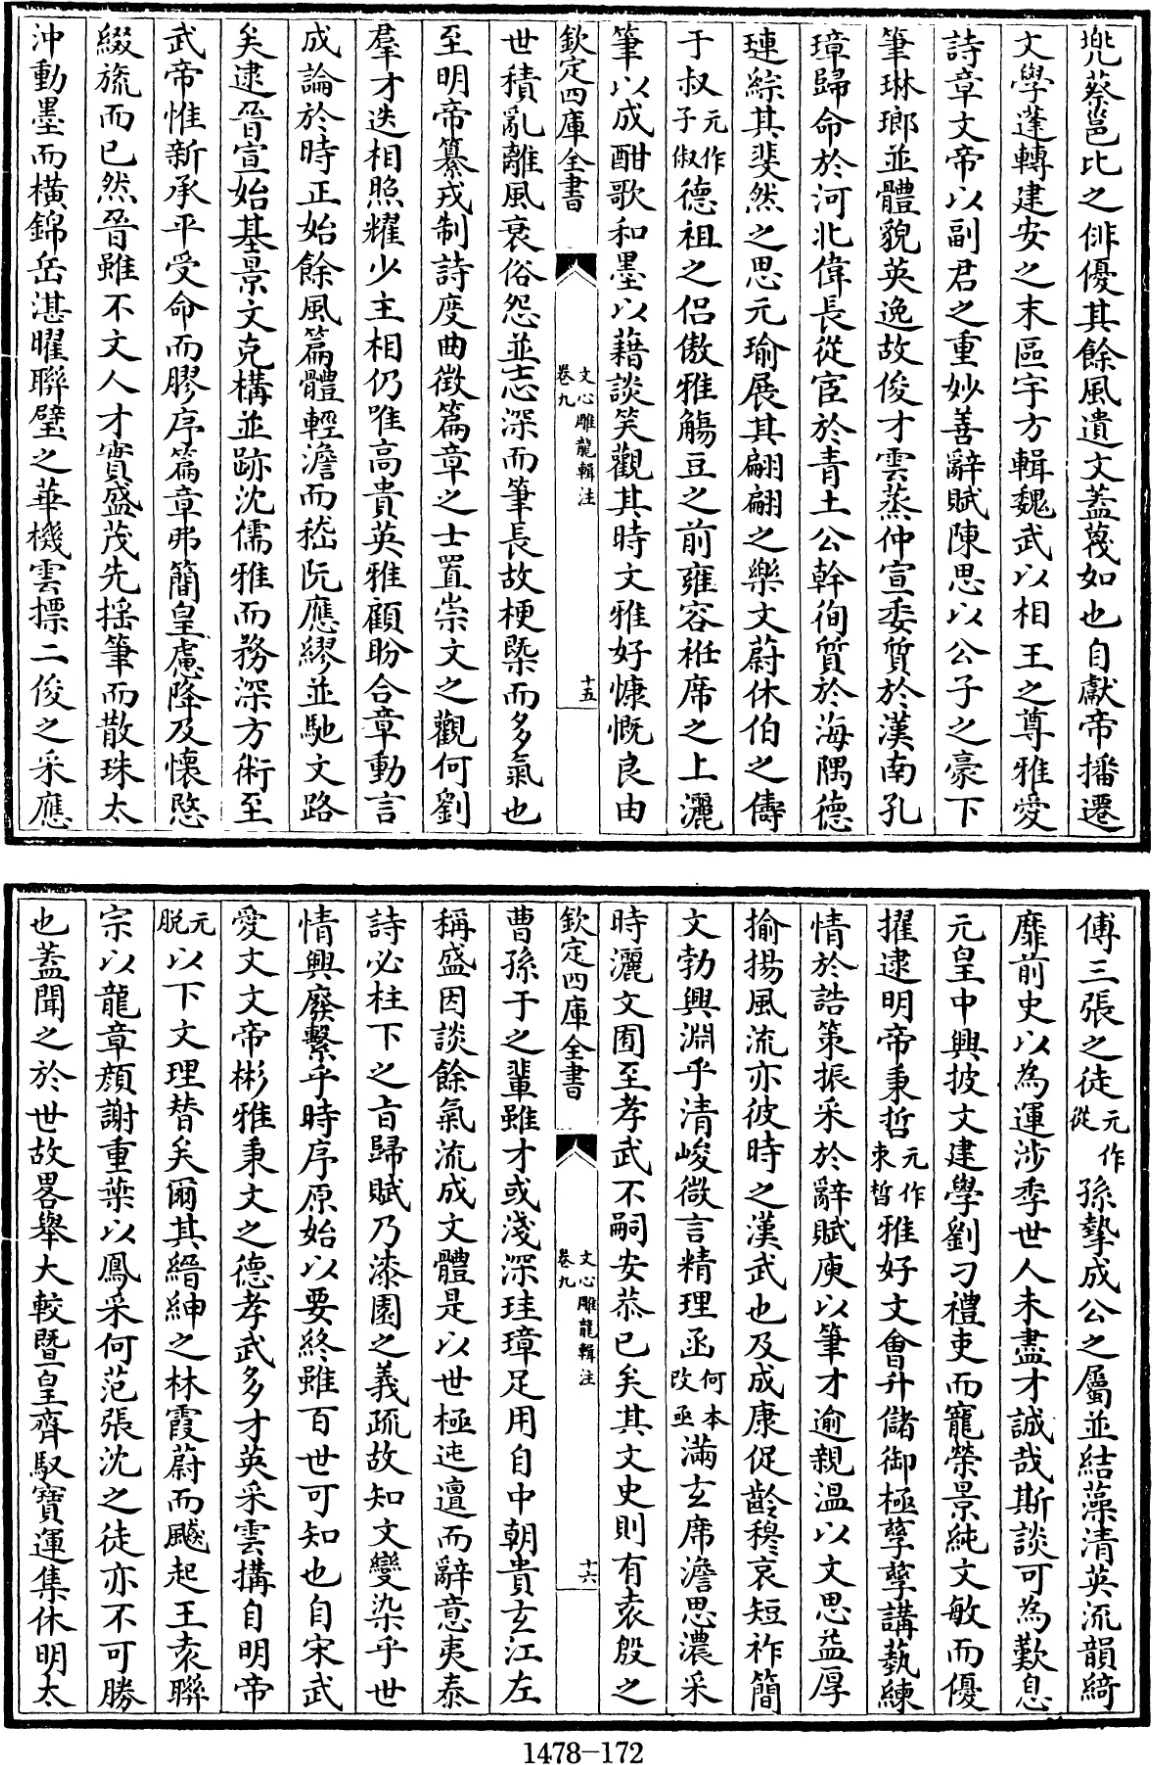 兠蔡邕比之俳優其餘風遺文蓋蔑如也自獻帝播遷
文學蓬轉建安之末區宇方輯魏武以相王之尊雅愛
詩章文帝以副君之重妙善辭賦陳思以公子之豪下
筆琳瑯並體貌英逸故俊才雲蒸仲宣委質於漢南孔
璋歸命於河北偉長從宦於青土公幹徇質於海隅德
璉綜其斐然之思元瑜展其翩翩之樂文蔚休伯之儔
于叔元作子俶德祖之侣傲雅觴豆之前雍容袵席之上灑
筆以成酣歌和墨以藉談笑觀其時文雅好慷慨良由
欽定四庫全書 文心雕龍輯注 卷九 十五
世積亂離風衰俗怨並志深而筆長故梗槩而多氣也
至明帝纂戎制詩度曲徵篇章之士置崇文之觀何劉
羣才迭相照耀少主相仍唯高貴英雅顧盼合章動言
成論於時正始餘風篇體輕澹而嵇阮應繆並馳文路
矣逮晉宣始基景文克構並跡沈儒雅而務深方術至
武帝惟新承平受命而膠序篇章弗簡皇慮降及懷愍
綴旒而已然晉雖不文人才實盛茂先揺筆而散珠太
沖動墨而橫錦岳湛曜聯璧之華機雲摽二俊之采應
傅三張之徒元作從孫摯成公之屬並結藻清英流韻綺
靡前史以為運涉季世人未盡才誠哉斯談可為歎息
元皇中興披文建學劉刁禮吏而寵榮景純文敏而優
擢逮明帝秉哲元作束晳雅好文會升儲御極孳孳講藝練
情於誥策振采於辭賦庾以筆才逾親温以文思益厚
揄揚風流亦彼時之漢武也及成康促齡穆哀短祚簡
文勃興淵乎清峻微言精理函何本改亟滿玄席澹思濃采
時灑文囿至孝武不嗣安恭已矣其文史則有袁殷之
欽定四庫全書 文心雕龍輯注 卷九 十六
曹孫于之輩雖才或淺深珪璋足用自中朝貴玄江左
稱盛因談餘氣流成文體是以世極迍邅而辭意夷泰
詩必柱下之旨歸賦乃漆園之義疏故知文變染乎世
情興廢繫乎時序原始以要終雖百世可知也自宋武
愛文文帝彬雅秉文之德孝武多才英采雲搆自明帝
元脱以下文理替矣爾其縉紳之林霞蔚而飈起王袁聯
宗以龍章顔謝重葉以鳳采何范張沈之徒亦不可勝
也蓋聞之於世故畧舉大較暨皇齊馭寶運集休明太
1478-172